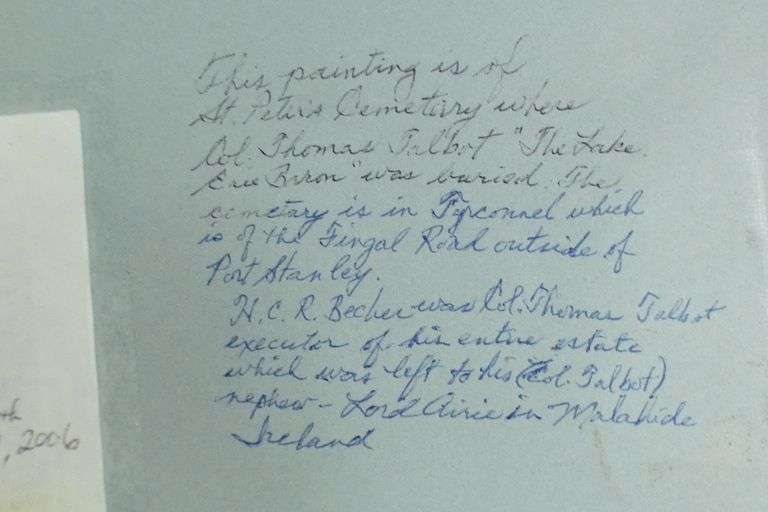 This painting is of
St. Peters Cemetary where
Col. Thomas Talbot "The Lake
Erie Baron" was buried. The
cemetary is in Tyrconnel which
is of the Fingal Road outside of
Port Stanley.
H. C. R. Becher was Col. Thomas Talbot
executor of his entire estate
which was left to his (Col. Talbot)
nephew - Lord Airie in Malahide
Ireland
th
, 2006